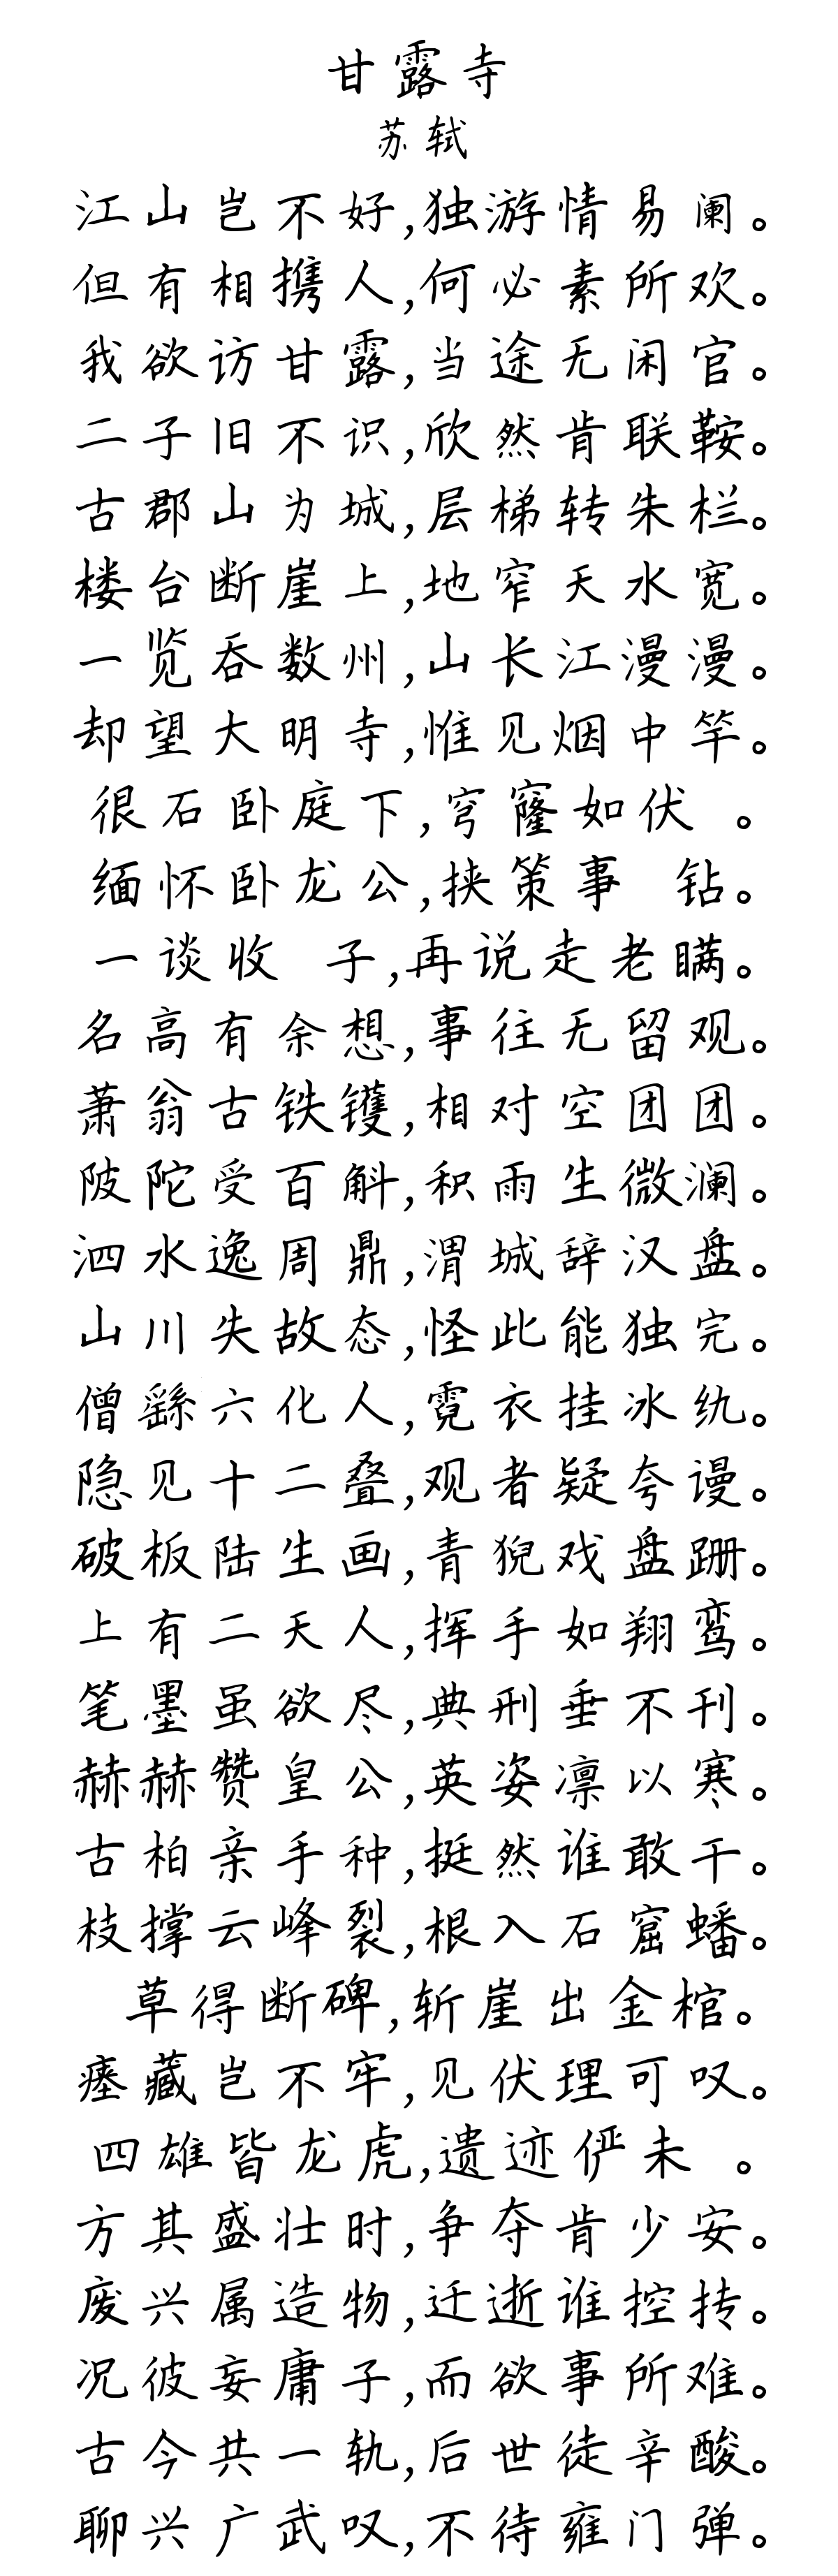 甘露寺
苏轼
江山岂不好,独游情易阑。
但有相携人,何必素所欢。
我欲访甘露,当途无闲官。
二子旧不识,欣然肯联鞍。
古郡山为城,层梯转朱栏。
楼台断崖上,地窄天水宽。
一览吞数州,山长江漫漫。
却望大明寺,惟见烟中竿。
很石卧庭下,穹窿如伏 。
缅怀卧龙公,挟策事 钻。
一谈收 子,再说走老瞒。
名高有余想,事往无留观。
萧翁古铁镬,相对空团团。
陂陀受百斛,积雨生微澜。
泗水逸周鼎,渭城辞汉盘。
山川失故态,怪此能独完。
僧繇六化人,霓衣挂冰纨。
隐见十二叠,观者疑夸谩。
破板陆生画,青猊戏盘跚。
上有二天人,挥手如翔鸾。
笔墨虽欲尽,典刑垂不刊。
赫赫赞皇公,英姿凛以寒。
古柏亲手种,挺然谁敢干。
枝撑云峰裂,根入石窟蟠。
草得断碑,斩崖出金棺。
瘗藏岂不牢,见伏理可叹。
四雄皆龙虎,遗迹俨未 。
方其盛壮时,争夺肯少安。
废兴属造物,迁逝谁控抟。
况彼妄庸子,而欲事所难。
古今共一轨,后世徒辛酸。
聊兴广武叹,不待雍门弹。